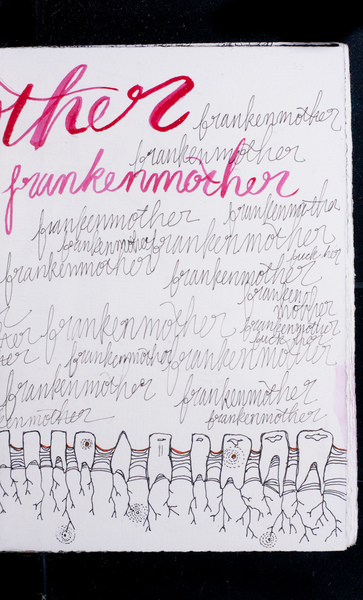 other
frankenmother
frankenmother
frankenmother
frankenmother
frankenmother
frankenmother
frankenmother
fuck her
frankenmother
frankenmother
franken
mother
frankenmother
frankenmother
fuck her
frankenmother
frankenmother
frankenmother
frankenmother
frankenmother